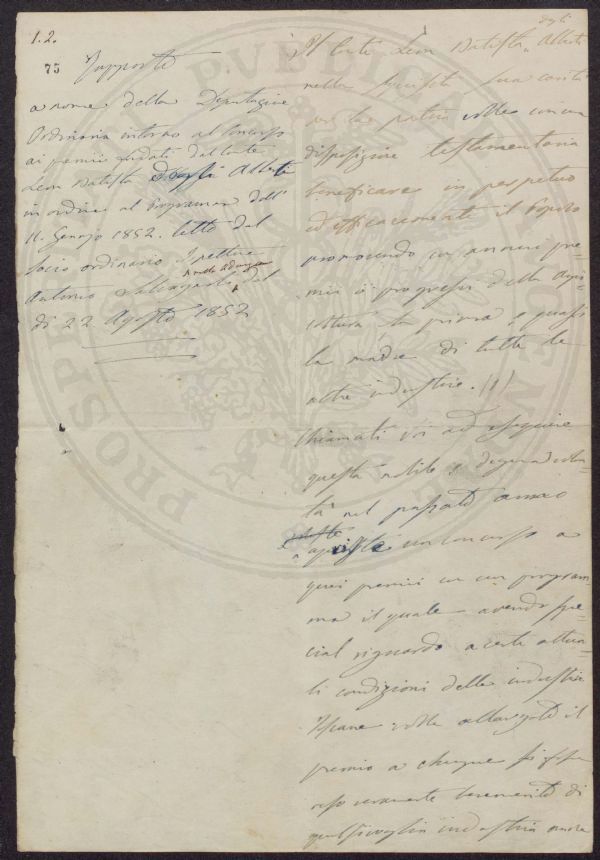 1.2.
75
Rapporto
a nome della Deputazione
Ordinaria intorno al Concorso
ai premii fondati dal Conte
Leon Batista degli Alberti
in ordine al Programma dell'
11. Gennajo 1852. letto dal
Socio ordinario Ispettore
nella Adunanza
Antonio Salvagnoli del
di 22 Agosto 1852
degli
Il Conte Leon Batista Alberti
nella sua carità
patria volle con una
disposizione testamentaria
beneficare in perpetuo
ed efficacemente il Popolo
promovendo con annui pre-
mii i progressi della Agri-
coltura la prima e quasi
la madre di tutte le
altre industrie. (1)
Chiamati voi ad eseguire
questa nobile e degna volon-
tà nel passato anno
apriste un Concorso a
quei premii con un program-
ma il quale avendo spe-
cial riguardo a certe attua-
li condizioni delle industrie
Toscane volle allargato il
premio a chiunque si fosse
reso veramente benemerito di
qualsivoglia industria ancora
PVBLICA
PROSPE